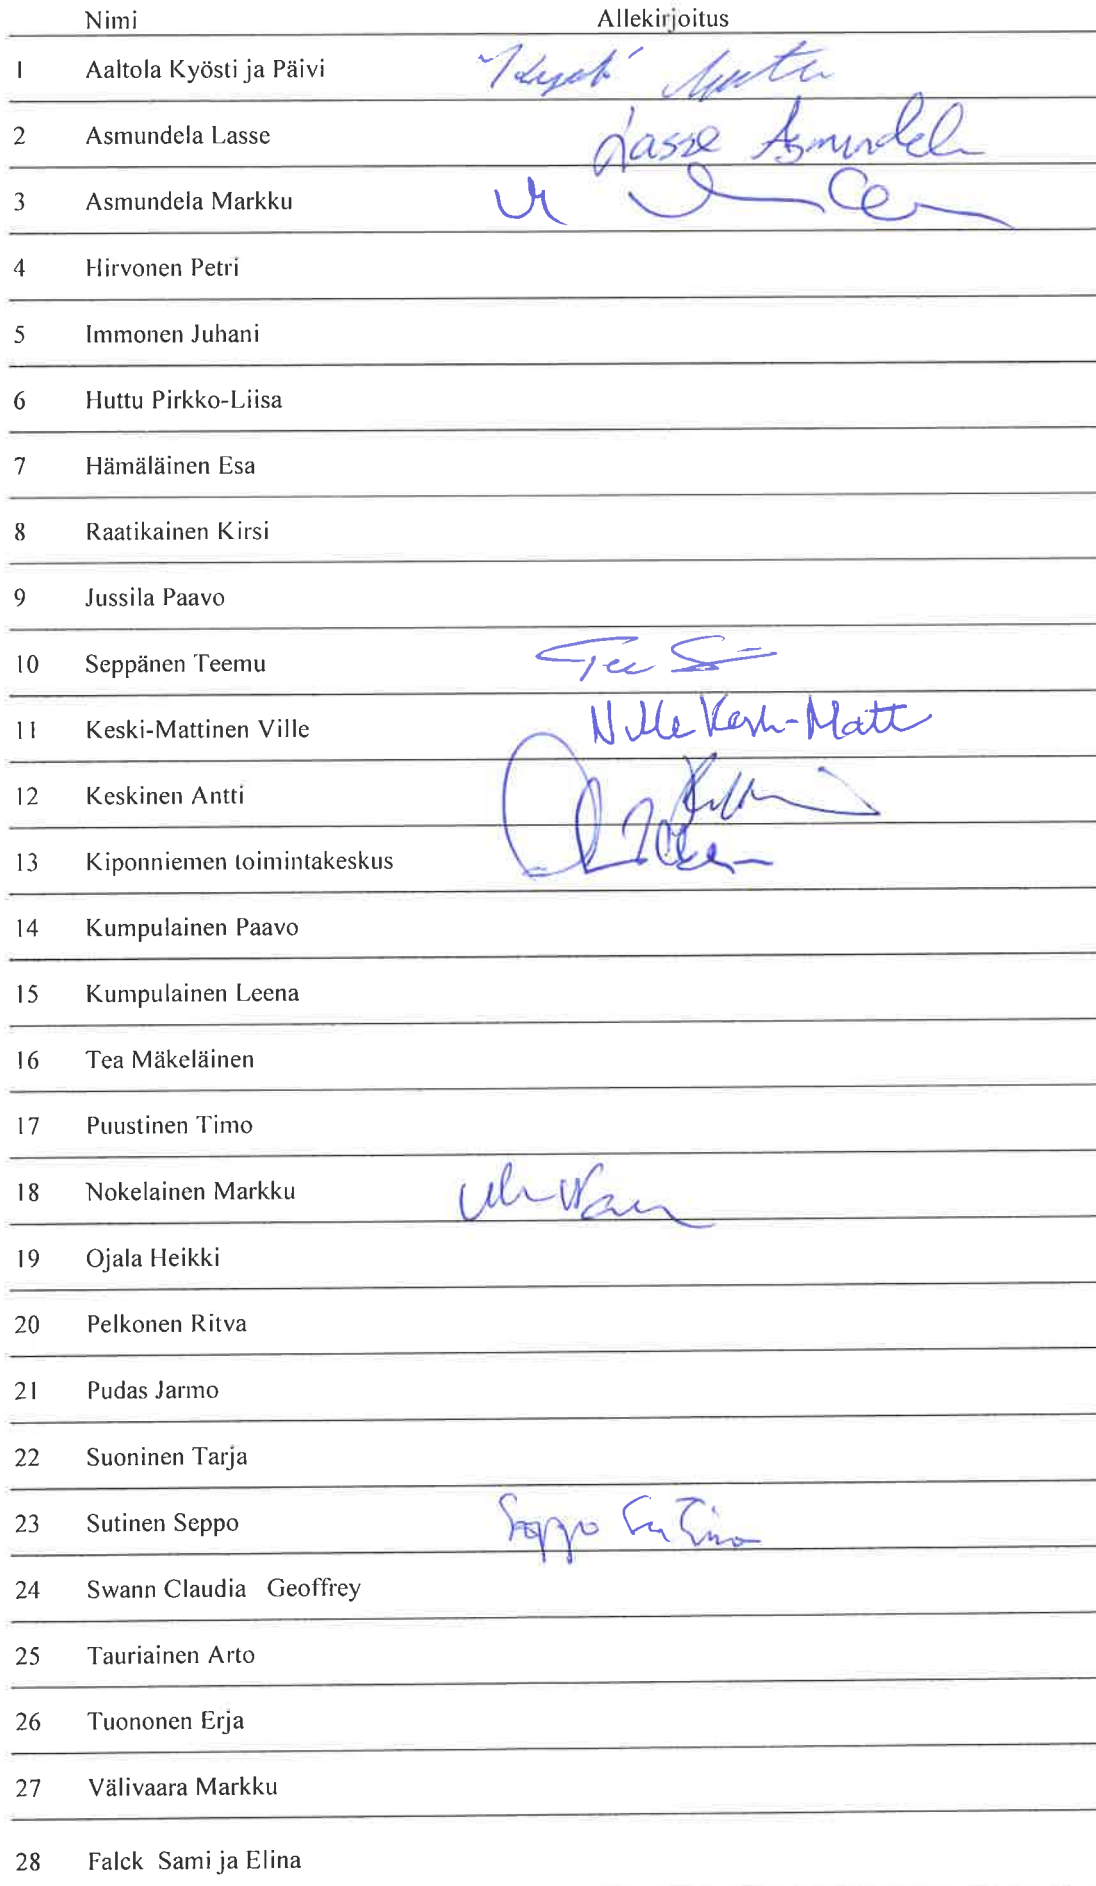 Nimi Allekirjoitus
1 Aaltola Kyösti ja Päivi
2 Asmundela Lasse Lasse Asmundela
3 Asmundela Markku
4 Hirvonen Petri
5 Immonen Juhani
6 Huttu Pirkko-Liisa
7 Hämäläinen Esa
8 Raatikainen Kirsi
9 Jussila Paavo
10 Seppänen Teemu
11 Keski-Mattinen Ville
12 Keskinen Antti
13 Kiponniemen toimintakeskus
14 Kumpulainen Paavo
15 Kumpulainen Leena
16 Tea Mäkeläinen
17 Puustinen Timo
18 Nokelainen Markku
19 Ojala Heikki
20 Pelkonen Ritva
21 Pudas Jarmo
22 Suoninen Tarja
23 Sutinen Seppo Seppo
24 Swann Claudia Geoffrey
25 Tauriainen Arto
26 Tuononen Erja
27 Välivaara Markku
28 Falck Sami ja Elina